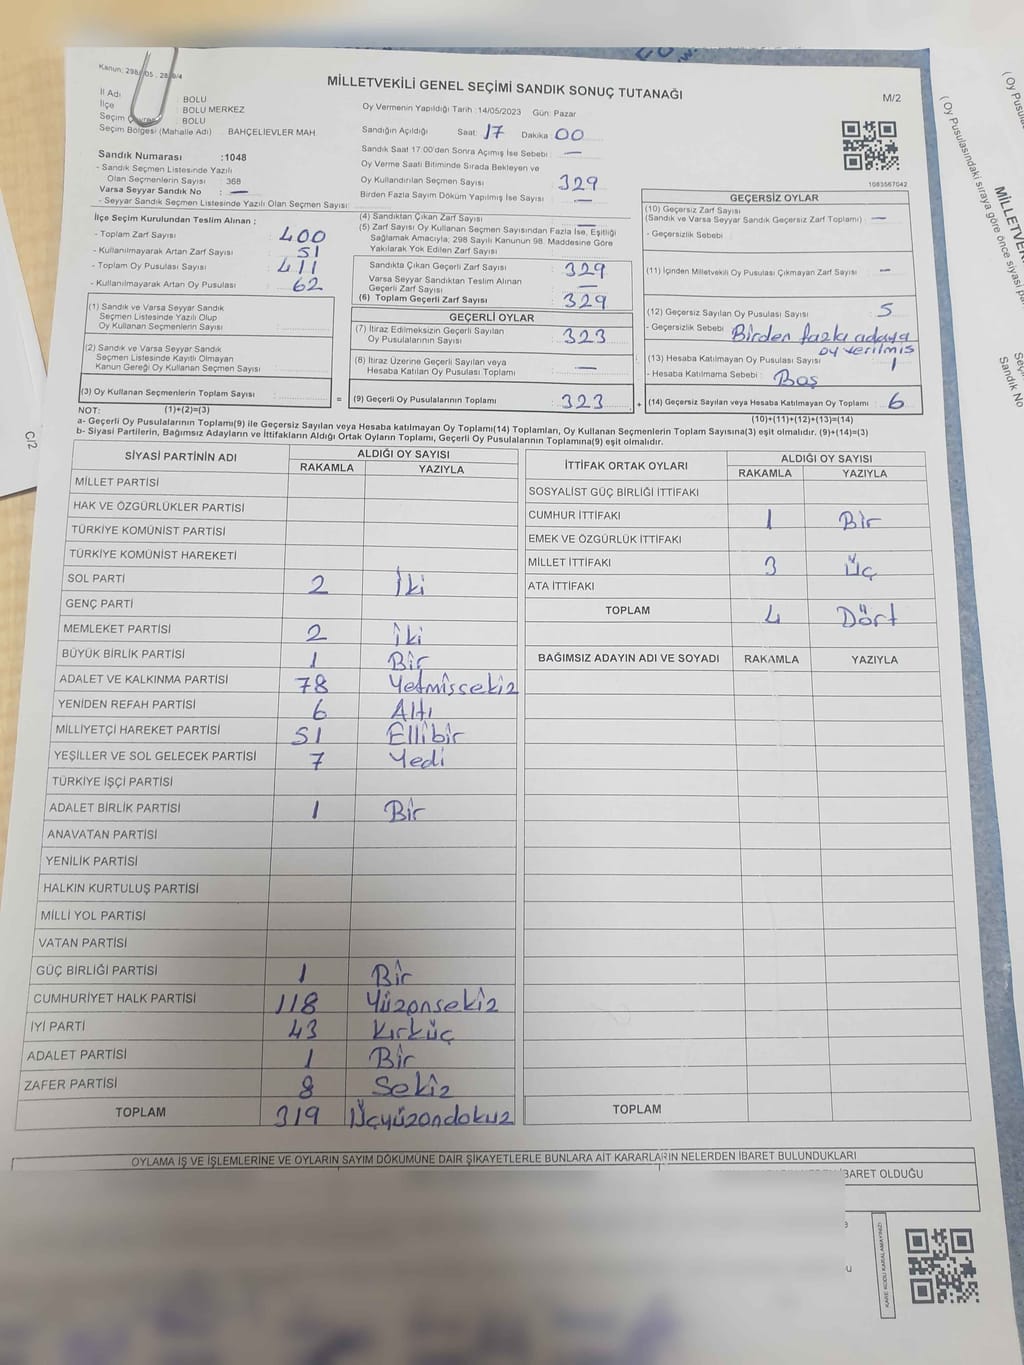 Kanun: 298
MİLLETVEKİLİ GENEL SEÇİMİ SANDIK SONUÇ TUTANAĞI
M/2
İl Adı : BOLU
İlçe : BOLU MERKEZ
Seçim : BOLU
Seçim Bölgesi (Mahalle Adı) BAHÇELİEVLER MAH.
Sandık Numarası :1048
- Sandık Seçmen Listesinde Yazılı
Olan Seçmenlerin Sayısı : 368
Varsa Seyyar Sandık No : —
- Seyyar Sandık Seçmen Listesinde Yazılı Olan Seçmen Sayısı:
Oy Vermenin Yapıldığı Tarih :14/05/2023 Gün: Pazar
Sandığın Açıldığı Saat: 17 Dakika 00
Sandık Saat 17.00'den Sonra Açımış İse Sebebi : —
Oy Verme Saati Bitiminde Sırada Bekleyen ve
Oy Kullandırılan Seçmen Sayısı 329
Birden Fazla Sayım Döküm Yapılmış İse Sayısı : —
1083567042
İlçe Seçim Kurulundan Teslim Alınan ;
- Toplam Zarf Sayısı : 400
- Kullanılmayarak Artan Zarf Sayısı : 51
- Toplam Oy Pusulası Sayısı : 411
- Kullanılmayarak Artan Oy Pusulası : 62
(1) Sandık ve Varsa Seyyar Sandık
Seçmen Listesinde Yazılı Olup
Oy Kullanan Seçmenlerin Sayısı :
(2) Sandık ve Varsa Seyyar Sandık
Seçmen Listesinde Kayıtlı Olmayan
Kanun Gereği Oy Kullanan Seçmen Sayısı :
(3) Oy Kullanan Seçmenlerin Toplam Sayısı :
(1)+(2)=(3)
(4) Sandıktan Çıkan Zarf Sayısı
(5) Zarf Sayısı Oy Kullanan Seçmen Sayısından Fazla İse, Eşitliği
Sağlamak Amacıyla; 298 Sayılı Kanunun 98. Maddesine Göre
Yakılarak Yok Edilen Zarf Sayısı
Sandıkta Çıkan Geçerli Zarf Sayısı : 329
Varsa Seyyar Sandıktan Teslim Alınan
Geçerli Zarf Sayısı : —
(6) Toplam Geçerli Zarf Sayısı : 329
GEÇERLİ OYLAR
(7) İtiraz Edilmeksizin Geçerli Sayılan
Oy Pusulalarının Sayısı : 323
(8) İtiraz Üzerine Geçerli Sayılan veya
Hesaba Katılan Oy Pusulası Toplamı : —
= (9) Geçerli Oy Pusulalarının Toplamı : 323 +
GEÇERSİZ OYLAR
(10) Geçersiz Zarf Sayısı
(Sandık ve Varsa Seyyar Sandık Geçersiz Zarf Toplamı) : —
- Geçersizlik Sebebi :
(11) İçinden Milletvekili Oy Pusulası Çıkmayan Zarf Sayısı : —
(12) Geçersiz Sayılan Oy Pusulası Sayısı : 5
- Geçersizlik Sebebi : Birden fazla adaya
oy verilmiş
(13) Hesaba Katılmayan Oy Pusulası Sayısı : 1
- Hesaba Katılmama Sebebi : Boş
(14) Geçersiz Sayılan veya Hesaba Katılmayan Oy Toplamı : 6
(10)+(11)+(12)+(13)=(14)
NOT:
a- Geçerli Oy Pusulalarının Toplamı(9) ile Geçersiz Sayılan veya Hesaba katılmayan Oy Toplamı(14) Toplamları, Oy Kullanan Seçmenlerin Toplam Sayısına(3) eşit olmalıdır. (9)+(14)=(3)
b- Siyasi Partilerin, Bağımsız Adayların ve İttifakların Aldığı Ortak Oyların Toplamı, Geçerli Oy Pusulalarının Toplamına(9) eşit olmalıdır.
SİYASİ PARTİNİN ADI ALDIĞI OY SAYISI
RAKAMLA YAZIYLA
MİLLET PARTİSİ
HAK VE ÖZGÜRLÜKLER PARTİSİ
TÜRKİYE KOMÜNİST PARTİSİ
TÜRKİYE KOMÜNİST HAREKETİ
SOL PARTİ 2 İki
GENÇ PARTİ
MEMLEKET PARTİSİ 2 İki
BÜYÜK BİRLİK PARTİSİ 1 Bir
ADALET VE KALKINMA PARTİSİ 78 Yetmişsekiz
YENİDEN REFAH PARTİSİ 6 Altı
MİLLİYETÇİ HAREKET PARTİSİ 51 Ellibir
YEŞİLLER VE SOL GELECEK PARTİSİ 7 Yedi
TÜRKİYE İŞÇİ PARTİSİ
ADALET BİRLİK PARTİSİ 1 Bir
ANAVATAN PARTİSİ
YENİLİK PARTİSİ
HALKIN KURTULUŞ PARTİSİ
MİLLİ YOL PARTİSİ
VATAN PARTİSİ
GÜÇ BİRLİĞİ PARTİSİ 1 Bir
CUMHURİYET HALK PARTİSİ 118 Yüzonsekiz
İYİ PARTİ 43 Kırküç
ADALET PARTİSİ 1 Bir
ZAFER PARTİSİ 8 Sekiz
TOPLAM 319 Üçyüzondokuz
İTTİFAK ORTAK OYLARI ALDIĞI OY SAYISI
RAKAMLA YAZIYLA
SOSYALİST GÜÇ BİRLİĞİ İTTİFAKI
CUMHUR İTTİFAKI 1 Bir
EMEK VE ÖZGÜRLÜK İTTİFAKI
MİLLET İTTİFAKI 3 Üç
ATA İTTİFAKI
TOPLAM 4 Dört
BAĞIMSIZ ADAYIN ADI VE SOYADI RAKAMLA YAZIYLA
TOPLAM
OYLAMA İŞ VE İŞLEMLERİNE VE OYLARIN SAYIM DÖKÜMÜNE DAİR ŞİKAYETLERLE BUNLARA AİT KARARLARIN NELERDEN İBARET BULUNDUKLARI
İBARET OLDUĞU
KARE KODU KARALAMAYINIZ!
C/2
Sandık No